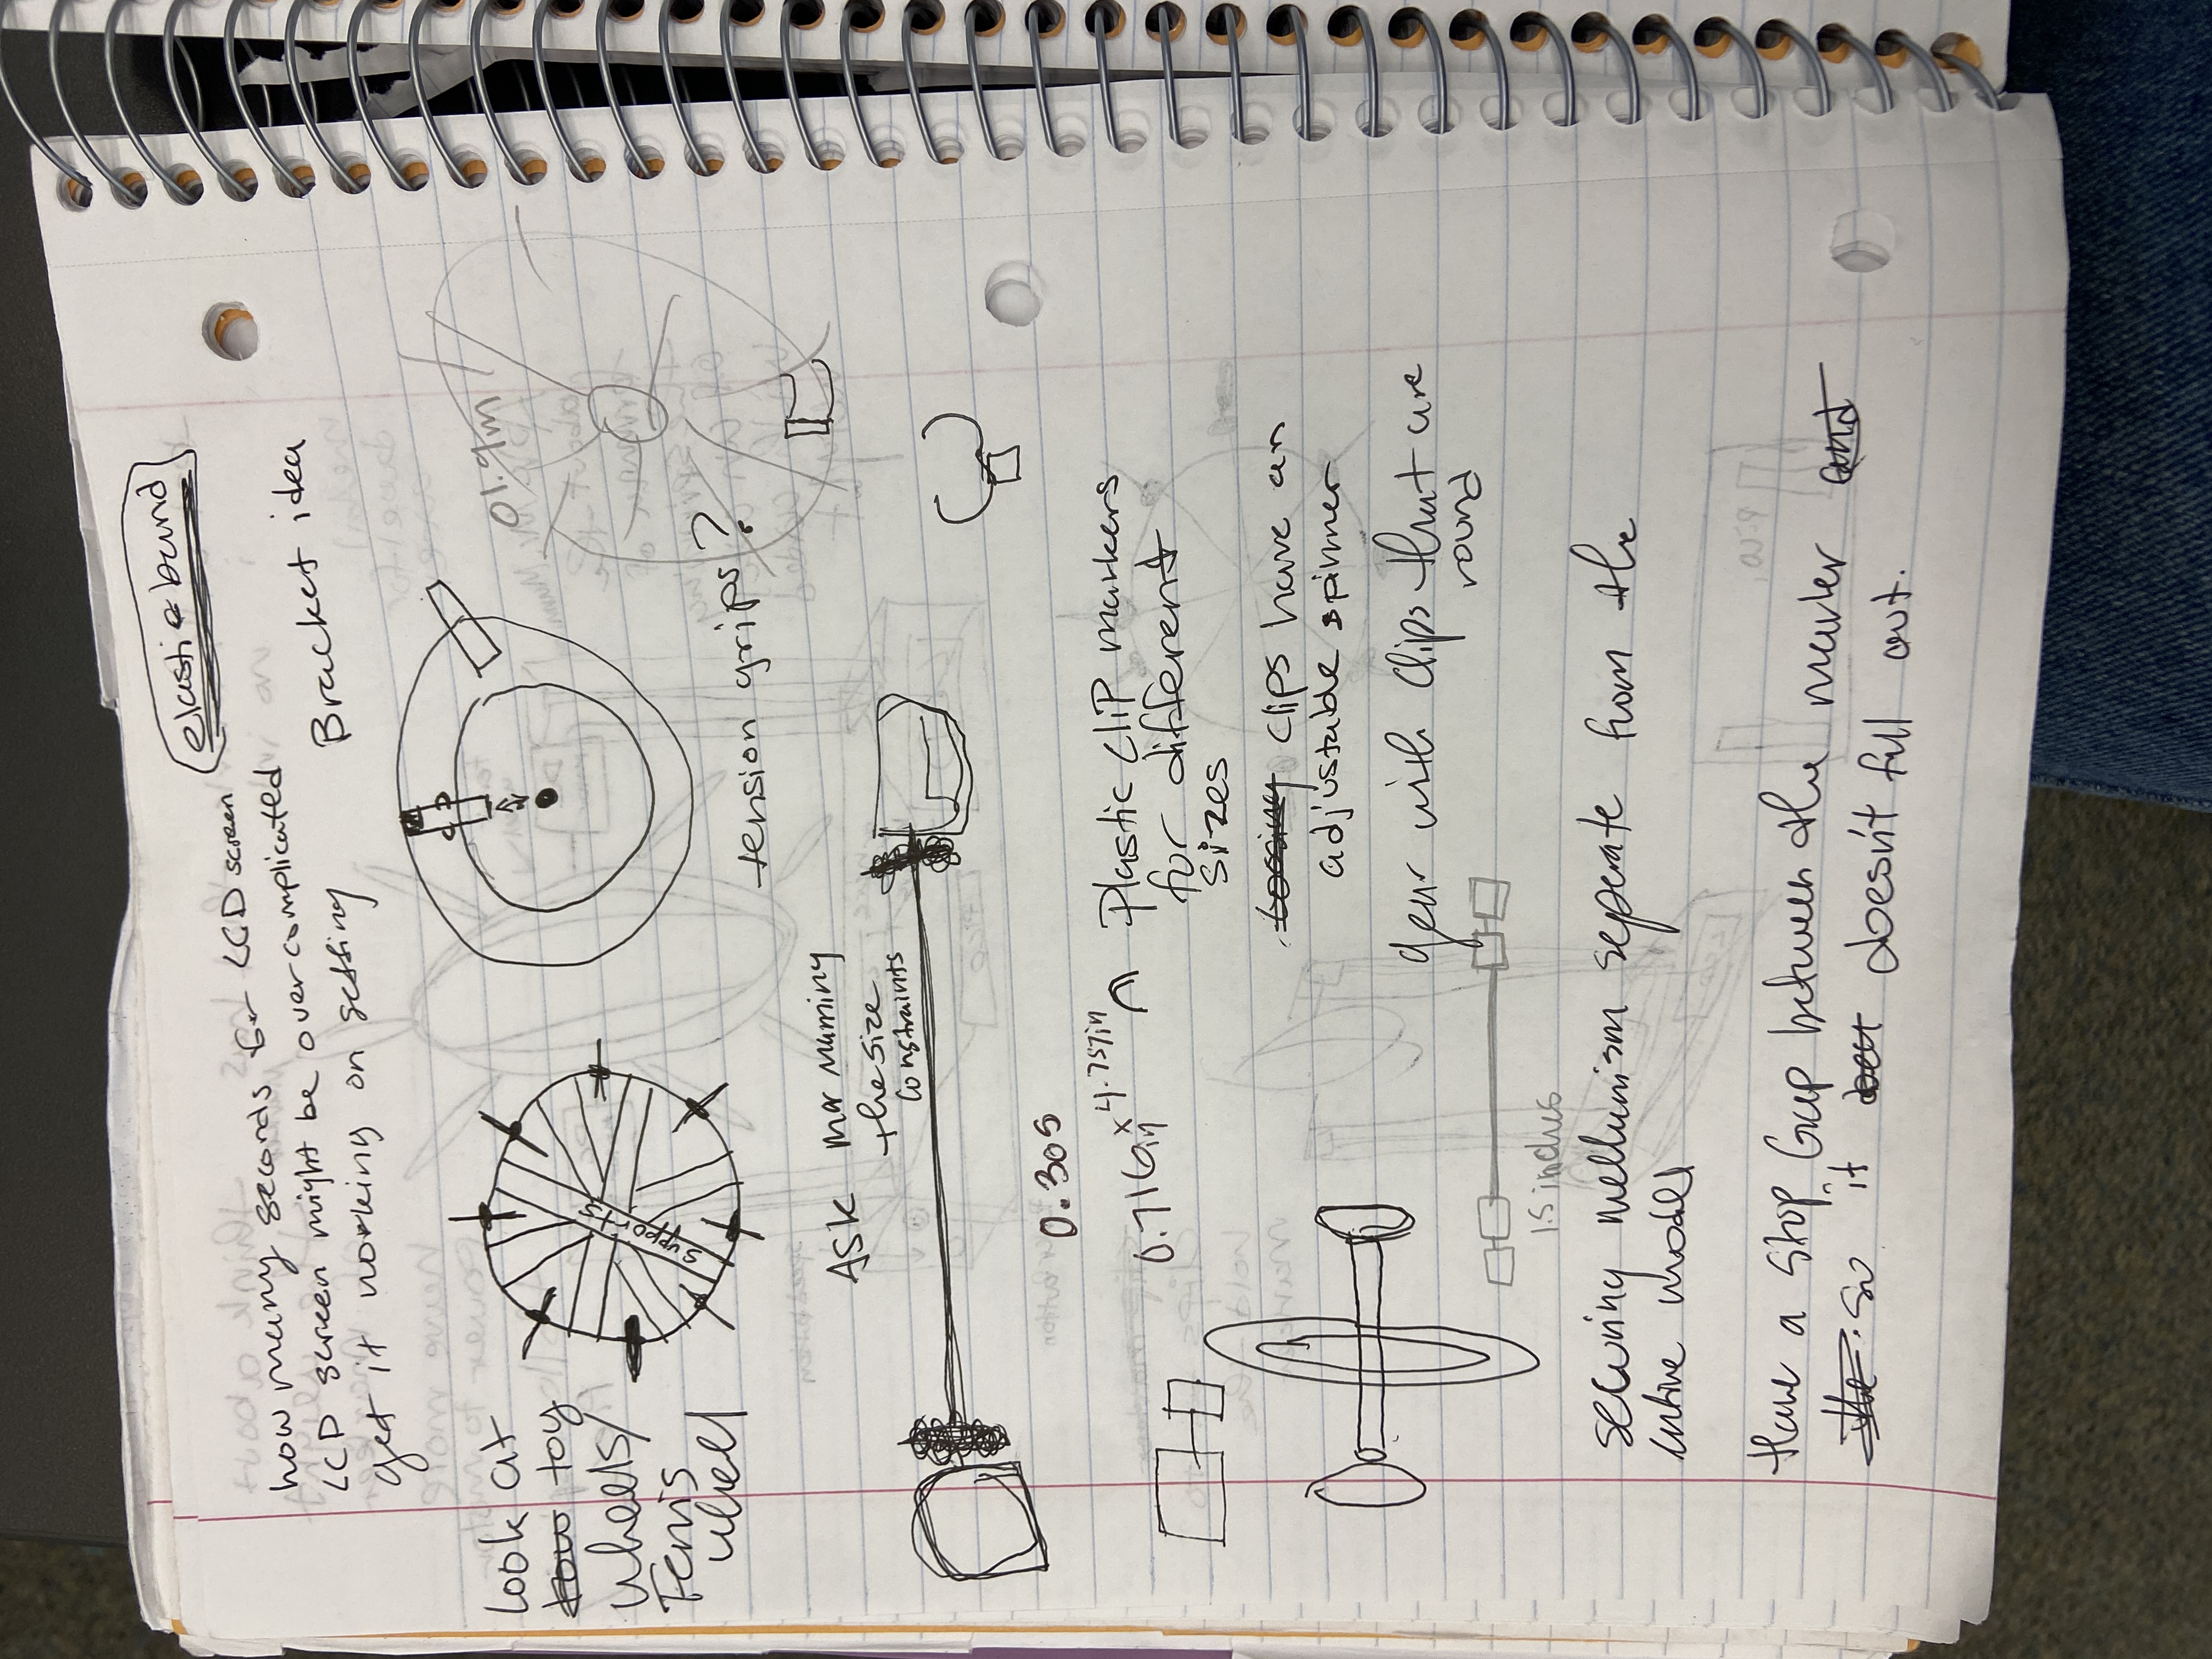 elastic band
how many seconds for LCD screen
LCD screen might be overcomplicated
get it working on setting
Bracket idea
Look at
how toy
wheels/
Ferris
wheel
supports
tension grips?
Ask mr
the size
constraints
0.305
0.716in x 4.757in
Plastic clip markers
for different
sizes
clips have an
adjustable spinner
gear with clips that are
round
1.5 inches
securing mechanism seperate from the
entire model
Have a stop Gap between the marker and
the so it doesn't fall out.